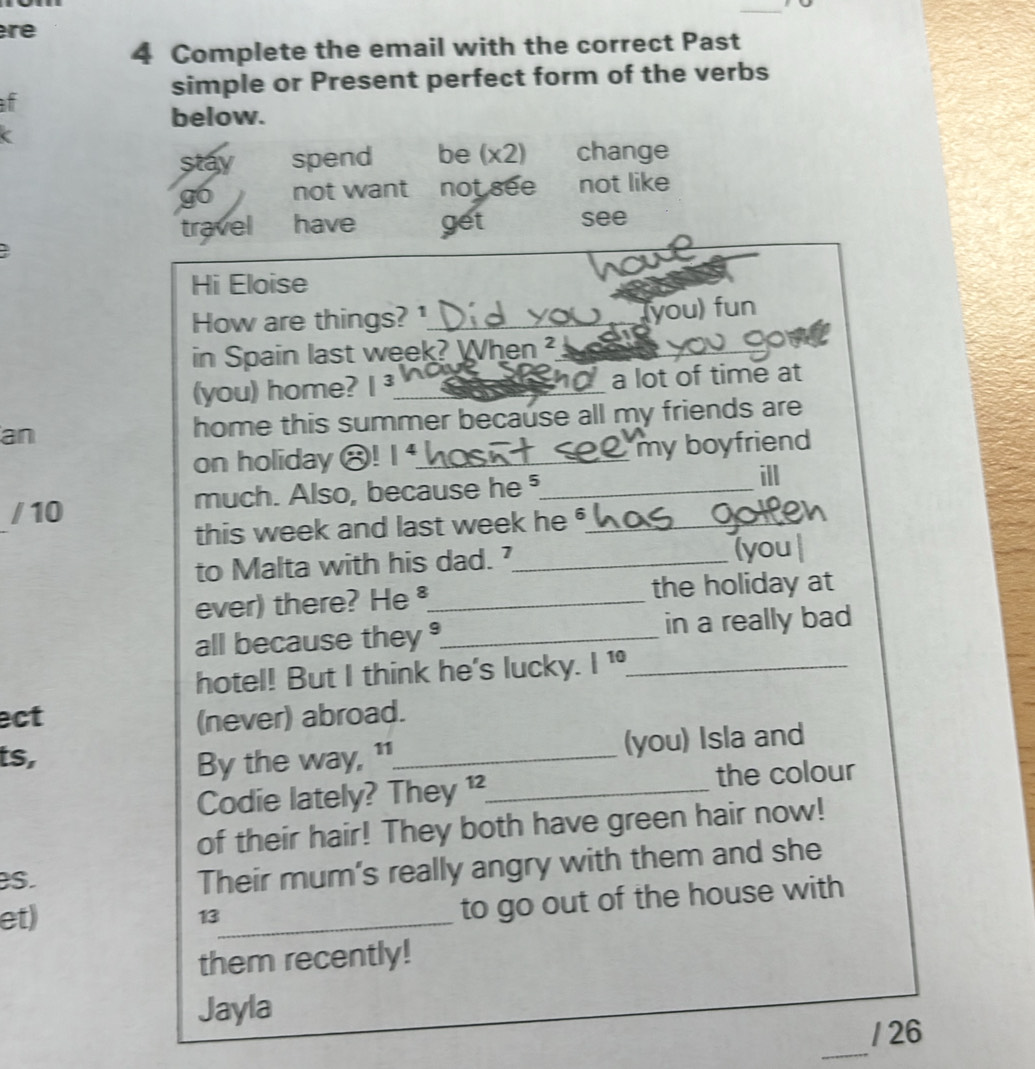 ere
4 Complete the email with the correct Past
simple or Present perfect form of the verbs
below.
ef
k
stay spend be (x2) change
go not want not see not like
travel have get see
Hi Eloise
have
How are things? 1 Did you (you) fun
in Spain last week? When 2 did you gone
(you) home? I 3 have spend a lot of time at
home this summer because all my friends are
on holiday ☹! I 4 hasn't seen my boyfriend
much. Also, because he 5 ill
this week and last week he 6 has gotten
to Malta with his dad. 7 (you |
ever) there? He 8 the holiday at
all because they 9 in a really bad
hotel! But I think he's lucky. I 10
(never) abroad.
By the way, 11 (you) Isla and
Codie lately? They 12 the colour
of their hair! They both have green hair now!
Their mum's really angry with them and she
13 to go out of the house with
them recently!
Jayla
/ 26
an
/ 10
ect
ts,
es.
et)